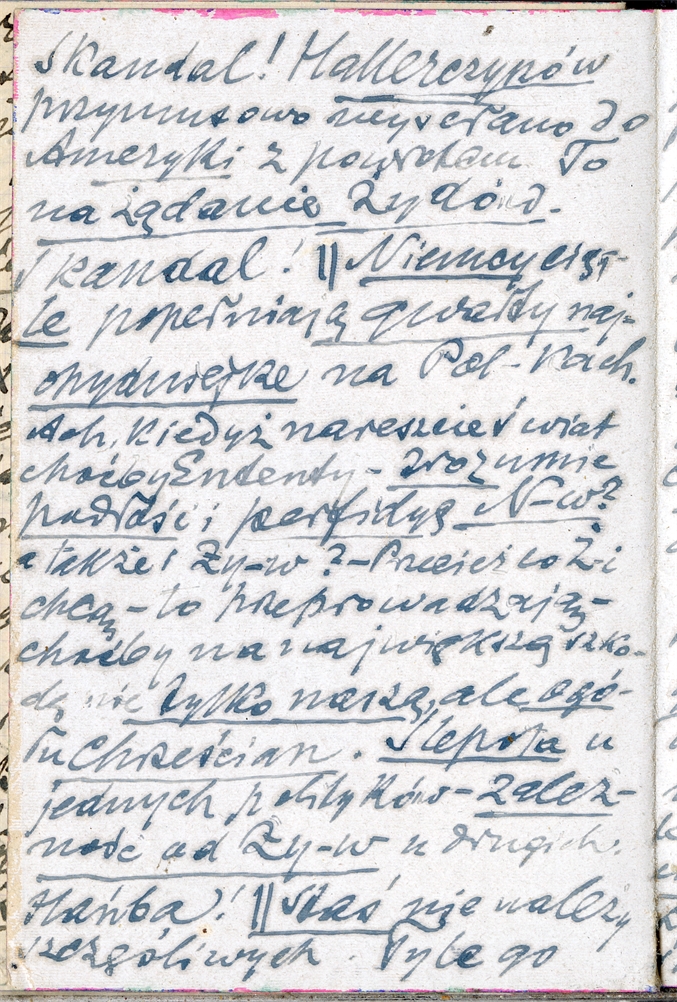 Skandal! Hallerczyków
przymusowo wysłano do
Ameryki z powrotem. To
na żądanie Żydów.
Skandal! || Niemcy ciąg-
le popełniają gwałty naj-
ohydniejsze na Pol-kach.
Ach, kiedyż nareszcie świat
choćby Ententy - zrozumie
podłość i perfidyę N-w?
a także i Ży-w? - Przecież co Ż-i
chcą - to przeprowadzają -
choćby na największą szko-
dę nie tylko naszą, ale ogó-
łu Chrześcian. Ślepota u
jednych polityków - zależ-
ność od Ży-w u drugich.
Hańba! || Staś nie należy
szczęśliwych. Tyle go